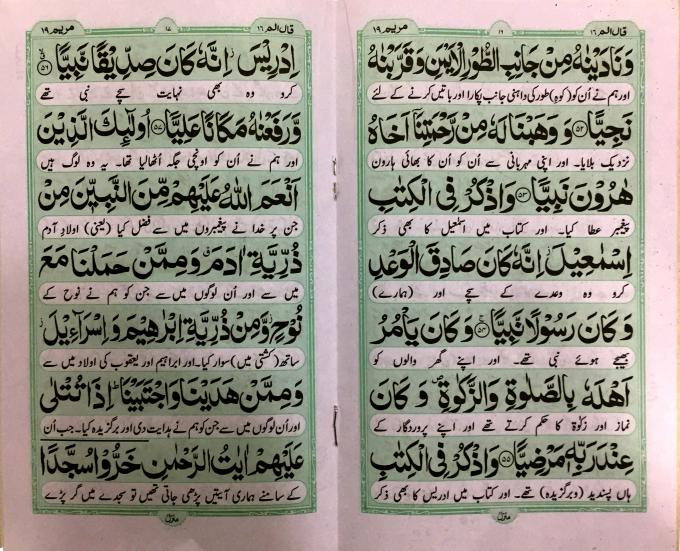 قال الم ١٦
١٦
مريم ١٩
وَنَادَيْنٰهُ مِنْ جَانِبِ الطُّوْرِ الْاَيْمَنِ وَقَرَّبْنٰهُ
اور ہم نے اُن کو (کوہِ) طور کی داہنی جانب پکارا اور باتیں کرنے کے لئے
نَجِيًّا ﴿٥٢﴾ وَوَهَبْنَا لَهٗ مِنْ رَّحْمَتِنَا اَخَاهُ
نزدیک بلایا۔ اور اپنی مہربانی سے اُن کو اُن کا بھائی ہارون
هٰرُوْنَ نَبِيًّا ﴿٥٣﴾ وَاذْكُرْ فِى الْكِتٰبِ
پیغمبر عطا کیا۔ اور کتاب میں اسمٰعیل کا بھی ذکر
اِسْمٰعِيْلَ اِنَّهٗ كَانَ صَادِقَ الْوَعْدِ
کرو وہ وعدے کے سچے اور (ہمارے)
وَكَانَ رَسُوْلًا نَّبِيًّا ﴿٥٤﴾ وَكَانَ يَاْمُرُ
بھیجے ہوئے نبی تھے۔ اور اپنے گھر والوں کو
اَهْلَهٗ بِالصَّلٰوةِ وَالزَّكٰوةِ وَكَانَ
نماز اور زکوٰۃ کا حکم کرتے تھے اور اپنے پروردگار کے
عِنْدَ رَبِّهٖ مَرْضِيًّا ﴿٥٥﴾ وَاذْكُرْ فِى الْكِتٰبِ
ہاں پسندیدہ (وبرگزیدہ) تھے۔ اور کتاب میں ادریس کا بھی ذکر
قال الم ١٦
١٧
مريم ١٩
اِدْرِيْسَ اِنَّهٗ كَانَ صِدِّيْقًا نَّبِيًّا ﴿٥٦﴾
کرو وہ بھی نہایت سچے نبی تھے
وَّرَفَعْنٰهُ مَكَانًا عَلِيًّا ﴿٥٧﴾ اُولٰٓئِكَ الَّذِيْنَ
اور ہم نے اُن کو اونچی جگہ اُٹھا لیا تھا۔ یہ وہ لوگ ہیں
اَنْعَمَ اللّٰهُ عَلَيْهِمْ مِّنَ النَّبِيّٖنَ مِنْ
جن پر خدا نے پیغمبروں میں سے فضل کیا (یعنی) اولادِ آدم
ذُرِّيَّةِ اٰدَمَ وَمِمَّنْ حَمَلْنَا مَعَ
میں سے اور اُن لوگوں میں سے جن کو ہم نے نوح کے
نُوْحٍ وَّمِنْ ذُرِّيَّةِ اِبْرٰهِيْمَ وَاِسْرَآءِيْلَ
ساتھ (کشتی میں) سوار کیا۔ اور ابراہیم اور یعقوب کی اولاد میں سے
وَمِمَّنْ هَدَيْنَا وَاجْتَبَيْنَا اِذَا تُتْلٰى
اور اُن لوگوں میں سے جن کو ہم نے ہدایت دی اور برگزیدہ کیا۔ جب اُن
عَلَيْهِمْ اٰيٰتُ الرَّحْمٰنِ خَرُّوْا سُجَّدًا
کے سامنے ہماری آیتیں پڑھی جاتی تھیں تو سجدے میں گر پڑے